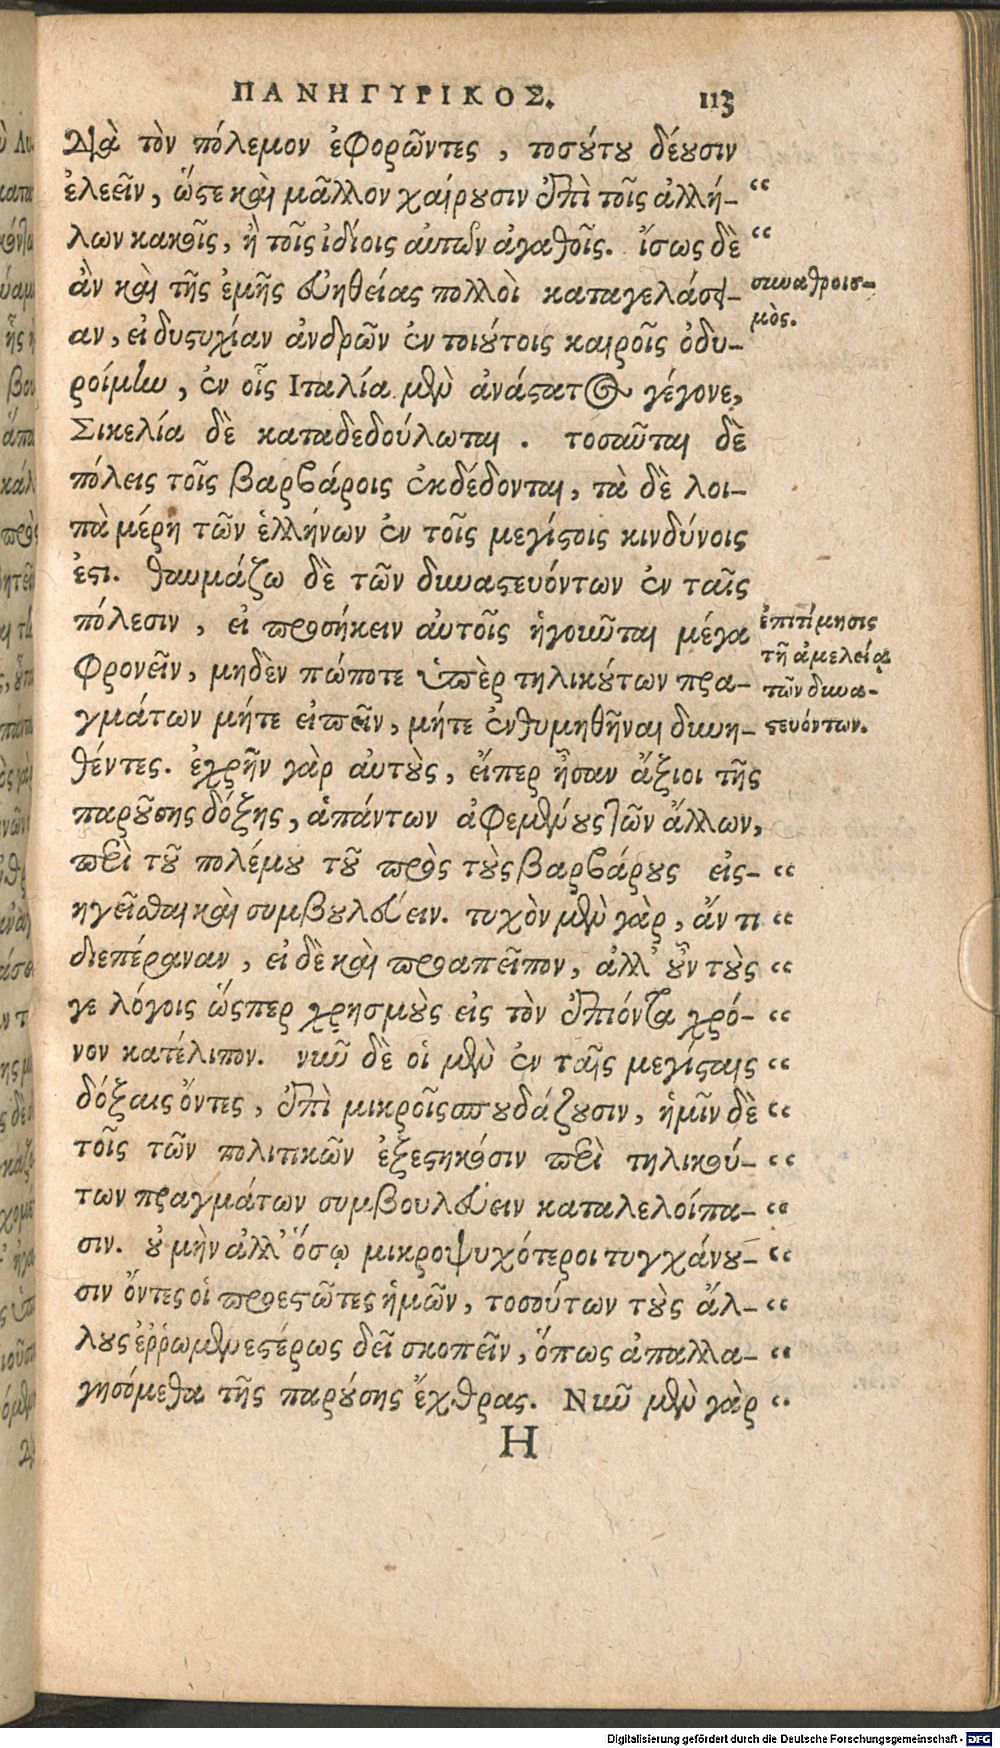 ΠΑΝΗΓΥΡΙΚΟΣ. 113
διὰ τὸν πόλεμον ἐφορῶντες, τοσούτου δέουσιν
ἐλεεῖν, ὥστε καὶ μᾶλλον χαίρουσιν ἐπὶ τοῖς ἀλλή- “
λων κακοῖς, ἢ τοῖς ἰδίοις αὑτῶν ἀγαθοῖς. ἴσως δὲ “
ἂν καὶ τῆς ἐμῆς εὐηθείας πολλοὶ καταγελάσει-
συναθροισ-
αν, εἰ δυστυχίαν ἀνδρῶν ἐν τοιούτοις καιροῖς ὀδυ-
μὸς.
ροίμην, ἐν οἷς Ἰταλία μὲν ἀνάστατος γέγονε,
Σικελία δὲ καταδεδούλωται. τοσαῦται δὲ
πόλεις τοῖς βαρβάροις ἐκδέδονται, τὰ δὲ λοι-
πὰ μέρη τῶν ἑλλήνων ἐν τοῖς μεγίστοις κινδύνοις
ἐστι. θαυμάζω δὲ τῶν δυναστευόντων ἐν ταῖς
πόλεσιν, εἰ προσήκειν αὐτοῖς ἡγοῦνται μέγα
ἐπιτίμησις
φρονεῖν, μηδὲν πώποτε ὑπὲρ τηλικούτων πρα-
τῆ ἀμελείᾳ
τῶν δυνα-
γμάτων μήτε εἰπεῖν, μήτε ἐνθυμηθῆναι δυνη-
στευόντων.
θέντες. ἐχρῆν γὰρ αὐτοὺς, εἴπερ ἦσαν ἄξιοι τῆς
παρούσης δόξης, ἁπάντων ἀφεμένους τῶν ἄλλων,
περὶ τοῦ πολέμου τοῦ πρὸς τοὺς βαρβάρους εἰς- “
ηγεῖσθαι καὶ συμβουλεύειν. τυχὸν μὲν γὰρ, ἄν τι “
διεπέραναν, εἰ δὲ καὶ προαπεῖπον, ἀλλ᾽ οὖν τοὺς “
γε λόγοις ὥσπερ χρησμοὺς εἰς τὸν ἐπιόντα χρό- “
νον κατέλιπον. νῦν δὲ οἱ μὲν ἐν ταῖς μεγίσταις “
δόξαις ὄντες, ἐπὶ μικροῖς σπουδάζουσιν, ἡμῖν δὲ “
τοῖς τῶν πολιτικῶν ἐξεστηκόσιν περὶ τηλικού- “
των πραγμάτων συμβουλεύειν καταλελοίπα- “
σιν. οὐ μὴν ἀλλ᾽ ὅσῳ μικροψυχότεροι τυγχάνου- “
σιν ὄντες οἱ προεστῶτες ἡμῶν, τοσούτων τοὺς ἄλ- “
λους ἐῤῥωμενεστέρως δεῖ σκοπεῖν, ὅπως ἀπαλλα- “
γησόμεθα τῆς παρούσης ἔχθρας. Νῦν μὲν γὰρ “
H
Digitalisierung gefördert durch die Deutsche Forschungsgemeinschaft - DFG